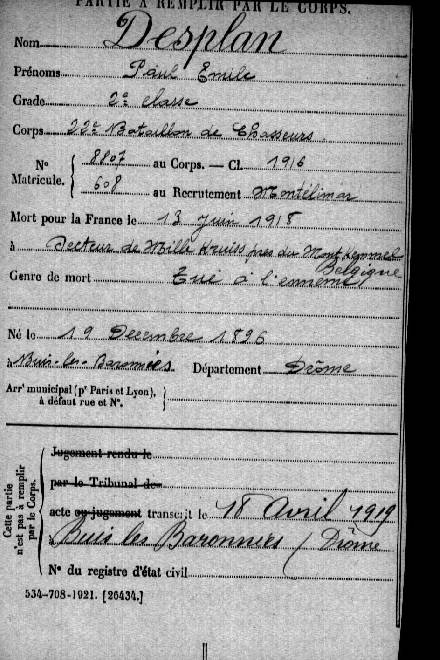 PARTIE A REMPLIR PAR LE CORPS.
Nom Desplan
Prénoms Paul Emile
Grade 2e classe
Corps 22e Bataillon de Chasseurs
N° Matricule. { 8807 au Corps. — Cl. 1916
608 au Recrutement Montélimar
Mort pour la France le 13 Juin 1918
à Secteur de Mille Kruiss près du Mont Kemmel
Belgique
Genre de mort Tué à l'ennemi
Né le 19 Décembre 1896
à Buis-les-Baronnies Département Drôme
Arrt municipal (pr Paris et Lyon), à défaut rue et N°.
Cette partie n'est pas à remplir par le Corps.
Jugement rendu le
par le Tribunal de
acte ou jugement transcrit le 18 Avril 1919
à Buis les Baronnies / Drôme
N° du registre d'état civil
534-708-1921. [26434.]